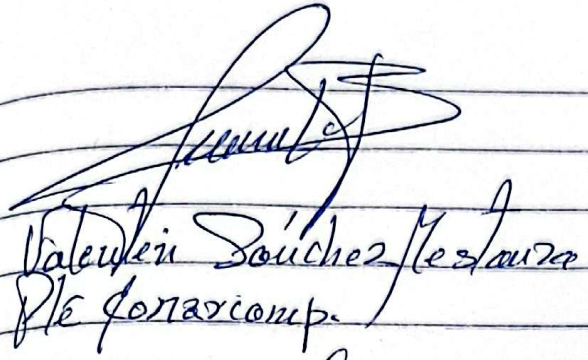 Valentín Sánchez Mestanza
Pte Conarcomp.